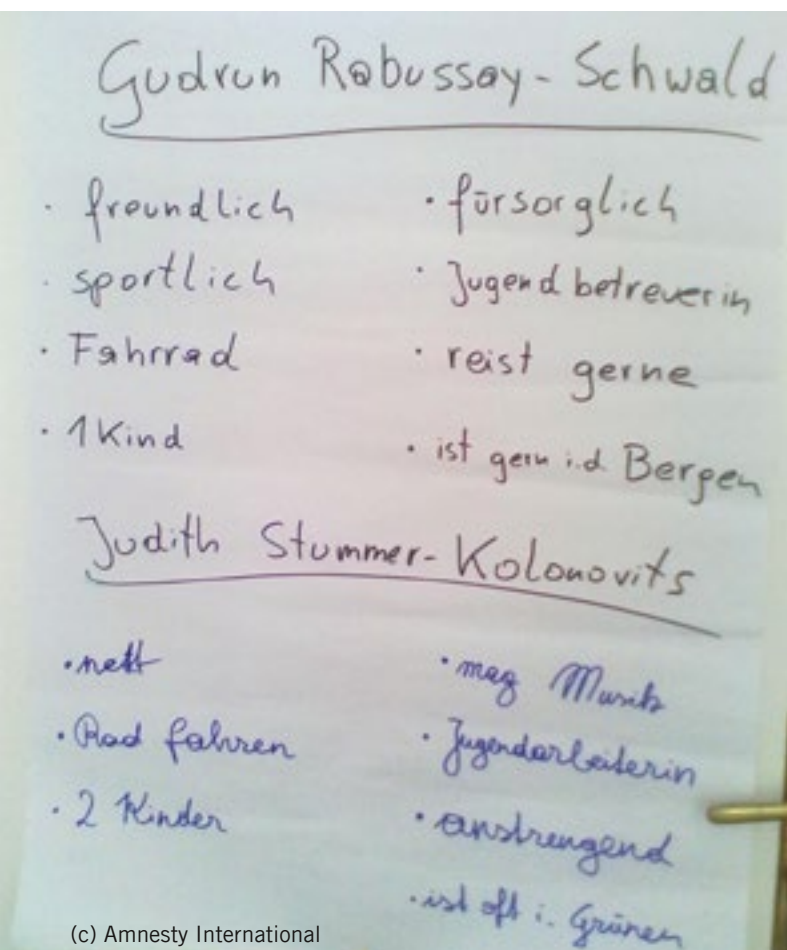 Gudrun Rabussay-Schwald
· freundlich
· sportlich
· Fahrrad
· 1 Kind
· fürsorglich
· Jugendbetreuerin
· reist gerne
· ist gern i.d Bergen
Judith Stummer-Kolonovits
· nett
· Rad fahren
· 2 Kinder
· mag Musik
· Jugendarbeiterin
· anstrengend
· ist oft i. Grünen
(c) Amnesty International